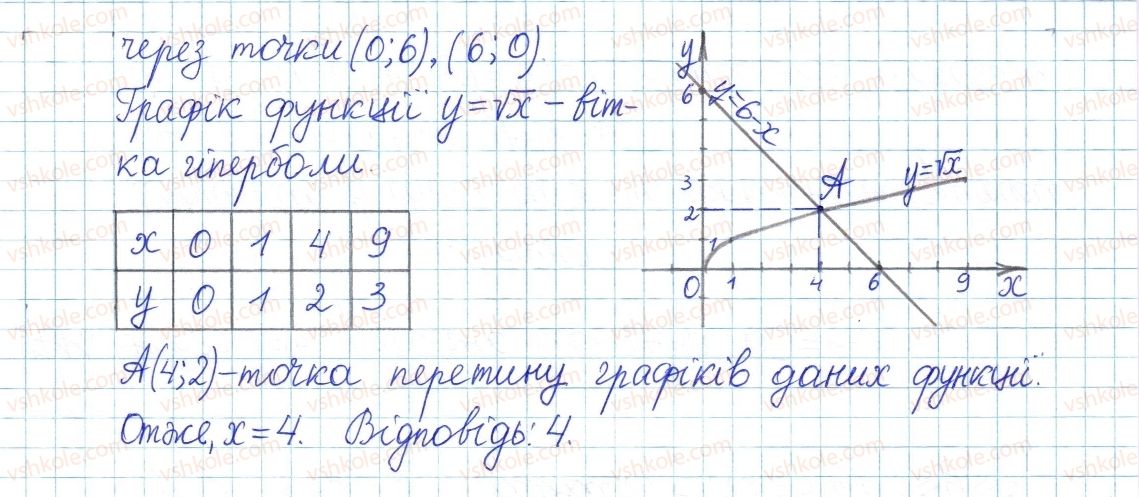 через точки (0;6), (6;0).
Графік функції y=√x – віт-
ка гіперболи.
x 0 1 4 9
y 0 1 2 3
y
6
y=6-x
3
2
1
A
y=√x
0 1 4 6 9 x
A(4;2)–точка перетину графіків даних функцій.
Отже, x=4. Відповідь: 4.
vshkole.com